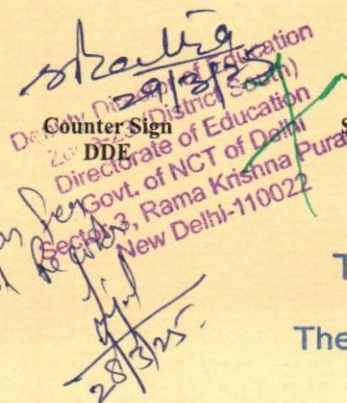 29/3/25
Deputy Director of Education
Zone (District South)
Counter Sign
DDE
Directorate of Education
Govt. of NCT of Delhi
Sector-3, Rama Krishna Pura
New Delhi-110022
as per
Record
28/3/25.
S
T
The